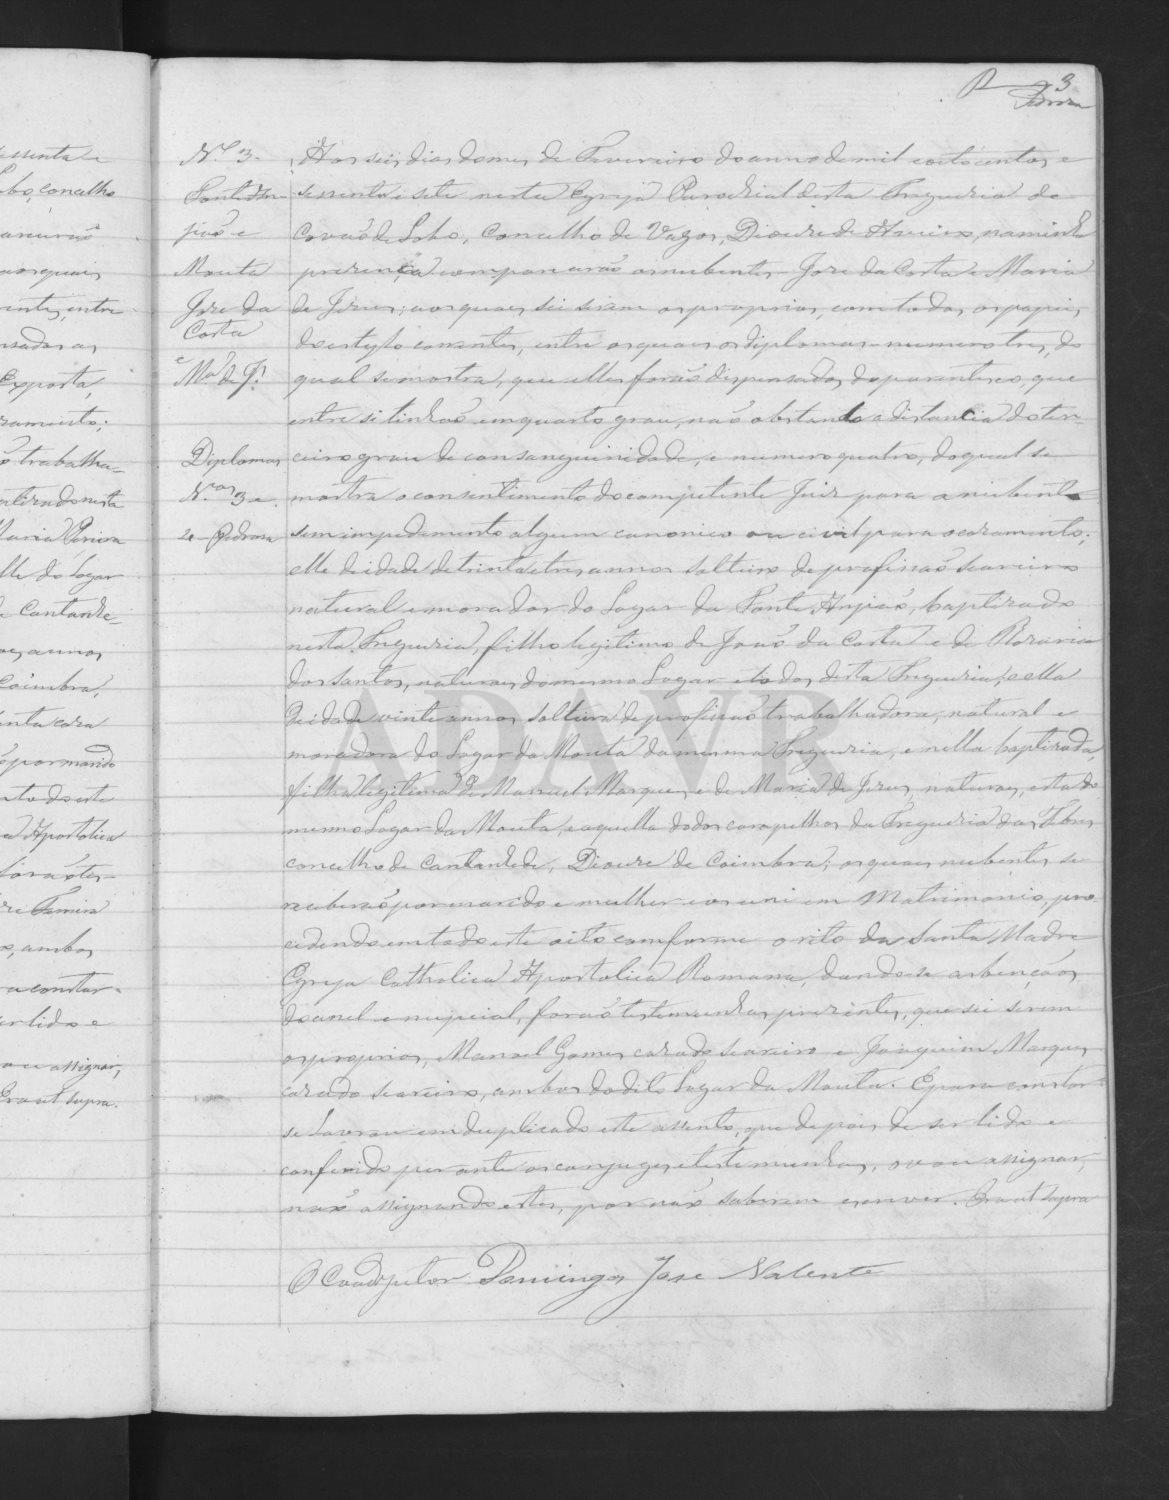 R 3
Pedroza
N.º 3.
Ponte An-
jião e
Mouta
Joze da
Costa
e
Mª de J.
Diplomas
N.os 3 e
4 - Pedroza
Aos seis dias do mes de Fevereiro do anno de mil e oito centos e
sessenta e sete nesta Egreja Parochial desta Freguezia do
Covão de Lobo, Concelho de Vagos, Diocese de Aveiro, na minha
prezença comparecerão os nubentes Joze da Costa e Maria
de Jezus; aos quaes sei serem os proprios, com todos os papeis
do estylo correntes, entre os quaes os diplomas numero tres, do
qual se mostra, que elles forão dispensados do parentesco, que
entre si tinhão em quarto grau, não obstando a distancia do ter-
ceiro grau de consanguinidade, e numero quatro, do qual se
mostra o consentimento do competente Juiz para a nubente
sem impedimento algum canonico ou civil para o cazamento;
elle de idade de trinta e tres annos solteiro de profissão seareiro
natural e morador do Logar da Ponte Anjião, baptizado
nesta Freguezia, filho legitimo de João da Costa e de Rozaria
dos Santos, naturaes do mesmo Logar e todos desta Freguezia; e ella
de idade vinte annos solteira de profissão trabalhadora, natural e
moradora do Logar da Mouta da mesma Freguezia, e nella baptizada,
filha legitima de Manuel Marques e de Maria de Jezus, naturaes, esta do
mesmo Logar da Mouta, e aquelle do dos carapelhos da Freguezia das Febres
concelho de Cantanhede, Diocese de Coimbra; os quaes nubentes se
receberão por marido e mulher e os uni em Matrimonio, pro-
cedendo em todo este acto conforme o rito da Santa Madre
Egreja Catholica Apostolica Romana, dando-se as benções
do anel e nupcial, forão testemunhas prezentes, que sei serem
os proprios, Manoel Gomes cazado seareiro e Joaquim Marques
cazado seareiro, ambos do dito Logar da Mouta. E para constar
se lavrou em duplicado este assento, que depois de ser lido e
conferido perante os conjuges e testemunhas, o vou assignar,
não assignando estes, por não saberem escrever. Era ut supra
O Coadjutor Domingos Joze Valente
ADAVR